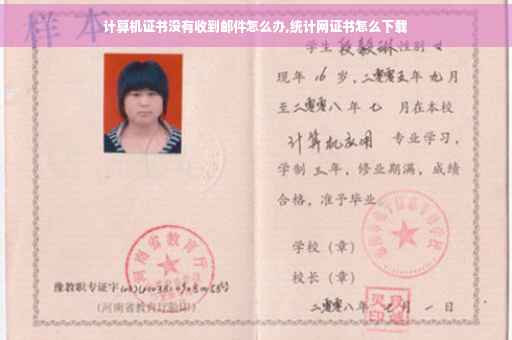 计算机证书没有收到邮件怎么办,统计网证书怎么下载
样本
学生段毅琳性别女
现年16岁，二零零五年九月
至二零零八年七月在本校
计算机应用 专业学习，
学制三年，修业期满，成绩
合格，准予毕业
学校（章）
校长（章）
二零零八年七月一日
河南省教育厅
豫教职专证字
(河南省教育厅验印)